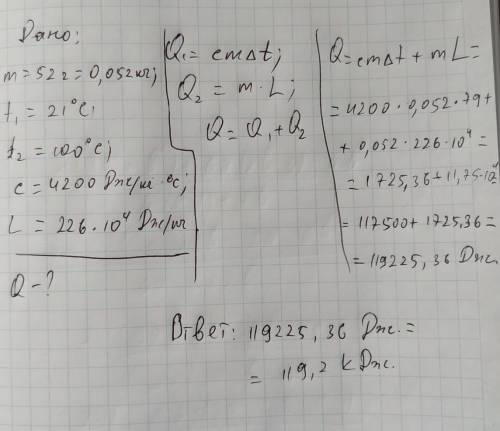 Дано:
m = 52 г = 0,052 кг;
t₁ = 21°C;
t₂ = 100°C;
c = 4200 Дж/кг·°C;
L = 226·10⁴ Дж/кг
Q - ?
Q₁ = cmΔt;
Q₂ = m·L;
Q = Q₁ + Q₂
Q = cmΔt + mL =
= 4200·0,052·79 +
+ 0,052·226·10⁴ =
= 1725,36 + 11,75·10⁴
= 117500 + 1725,36 =
= 119225,36 Дж.
Ответ: 119225,36 Дж. =
= 119,2 кДж.